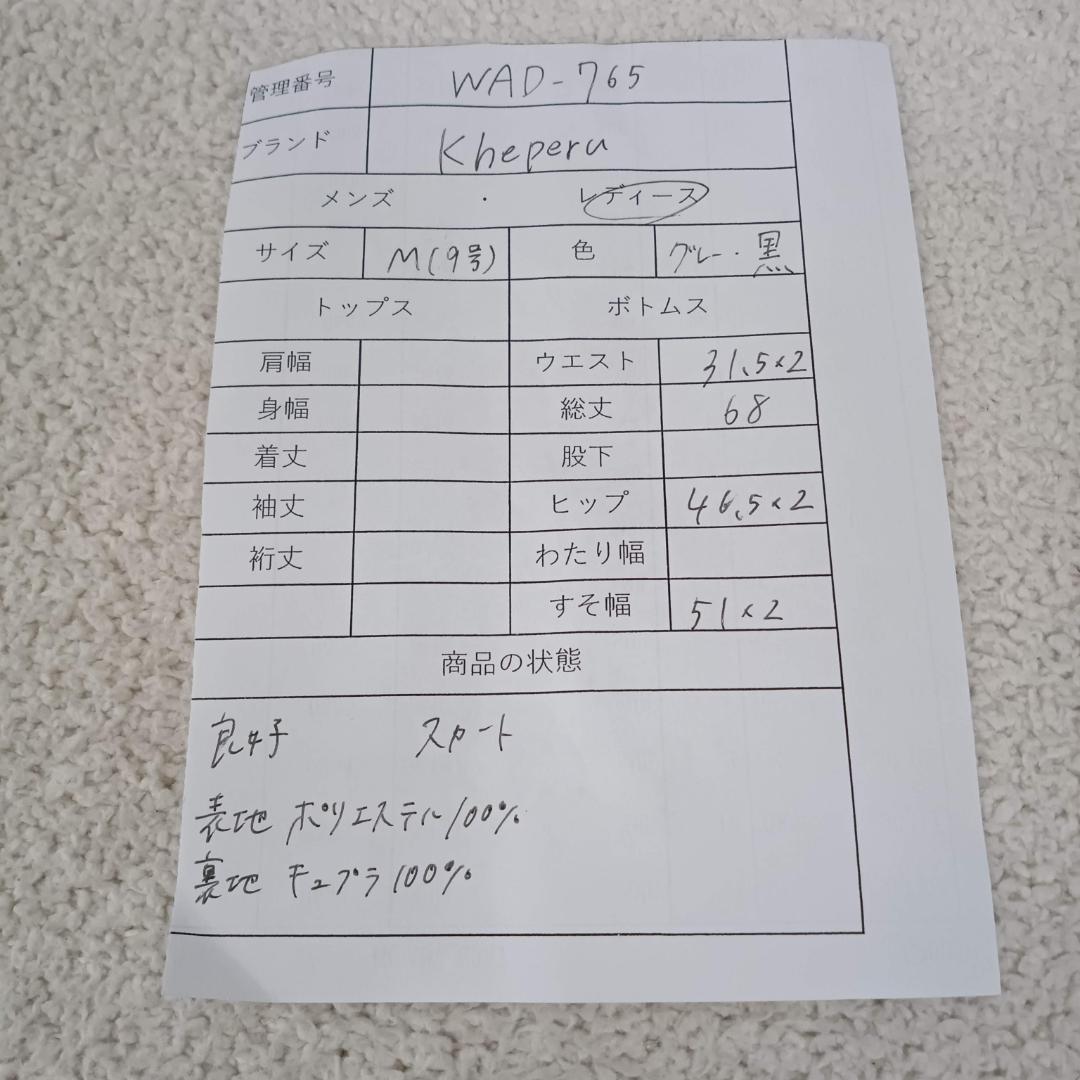 管理番号 WAD-765
ブランド Kheperu
メンズ ・ レディース
サイズ M(9号) 色 グレー・黒
トップス ボトムス
肩幅 ウエスト 31.5×2
身幅 総丈 68
着丈 股下
袖丈 ヒップ 46.5×2
裄丈 わたり幅
すそ幅 51×2
商品の状態
良好 スカート
表地 ポリエステル100%
裏地 キュプラ100%